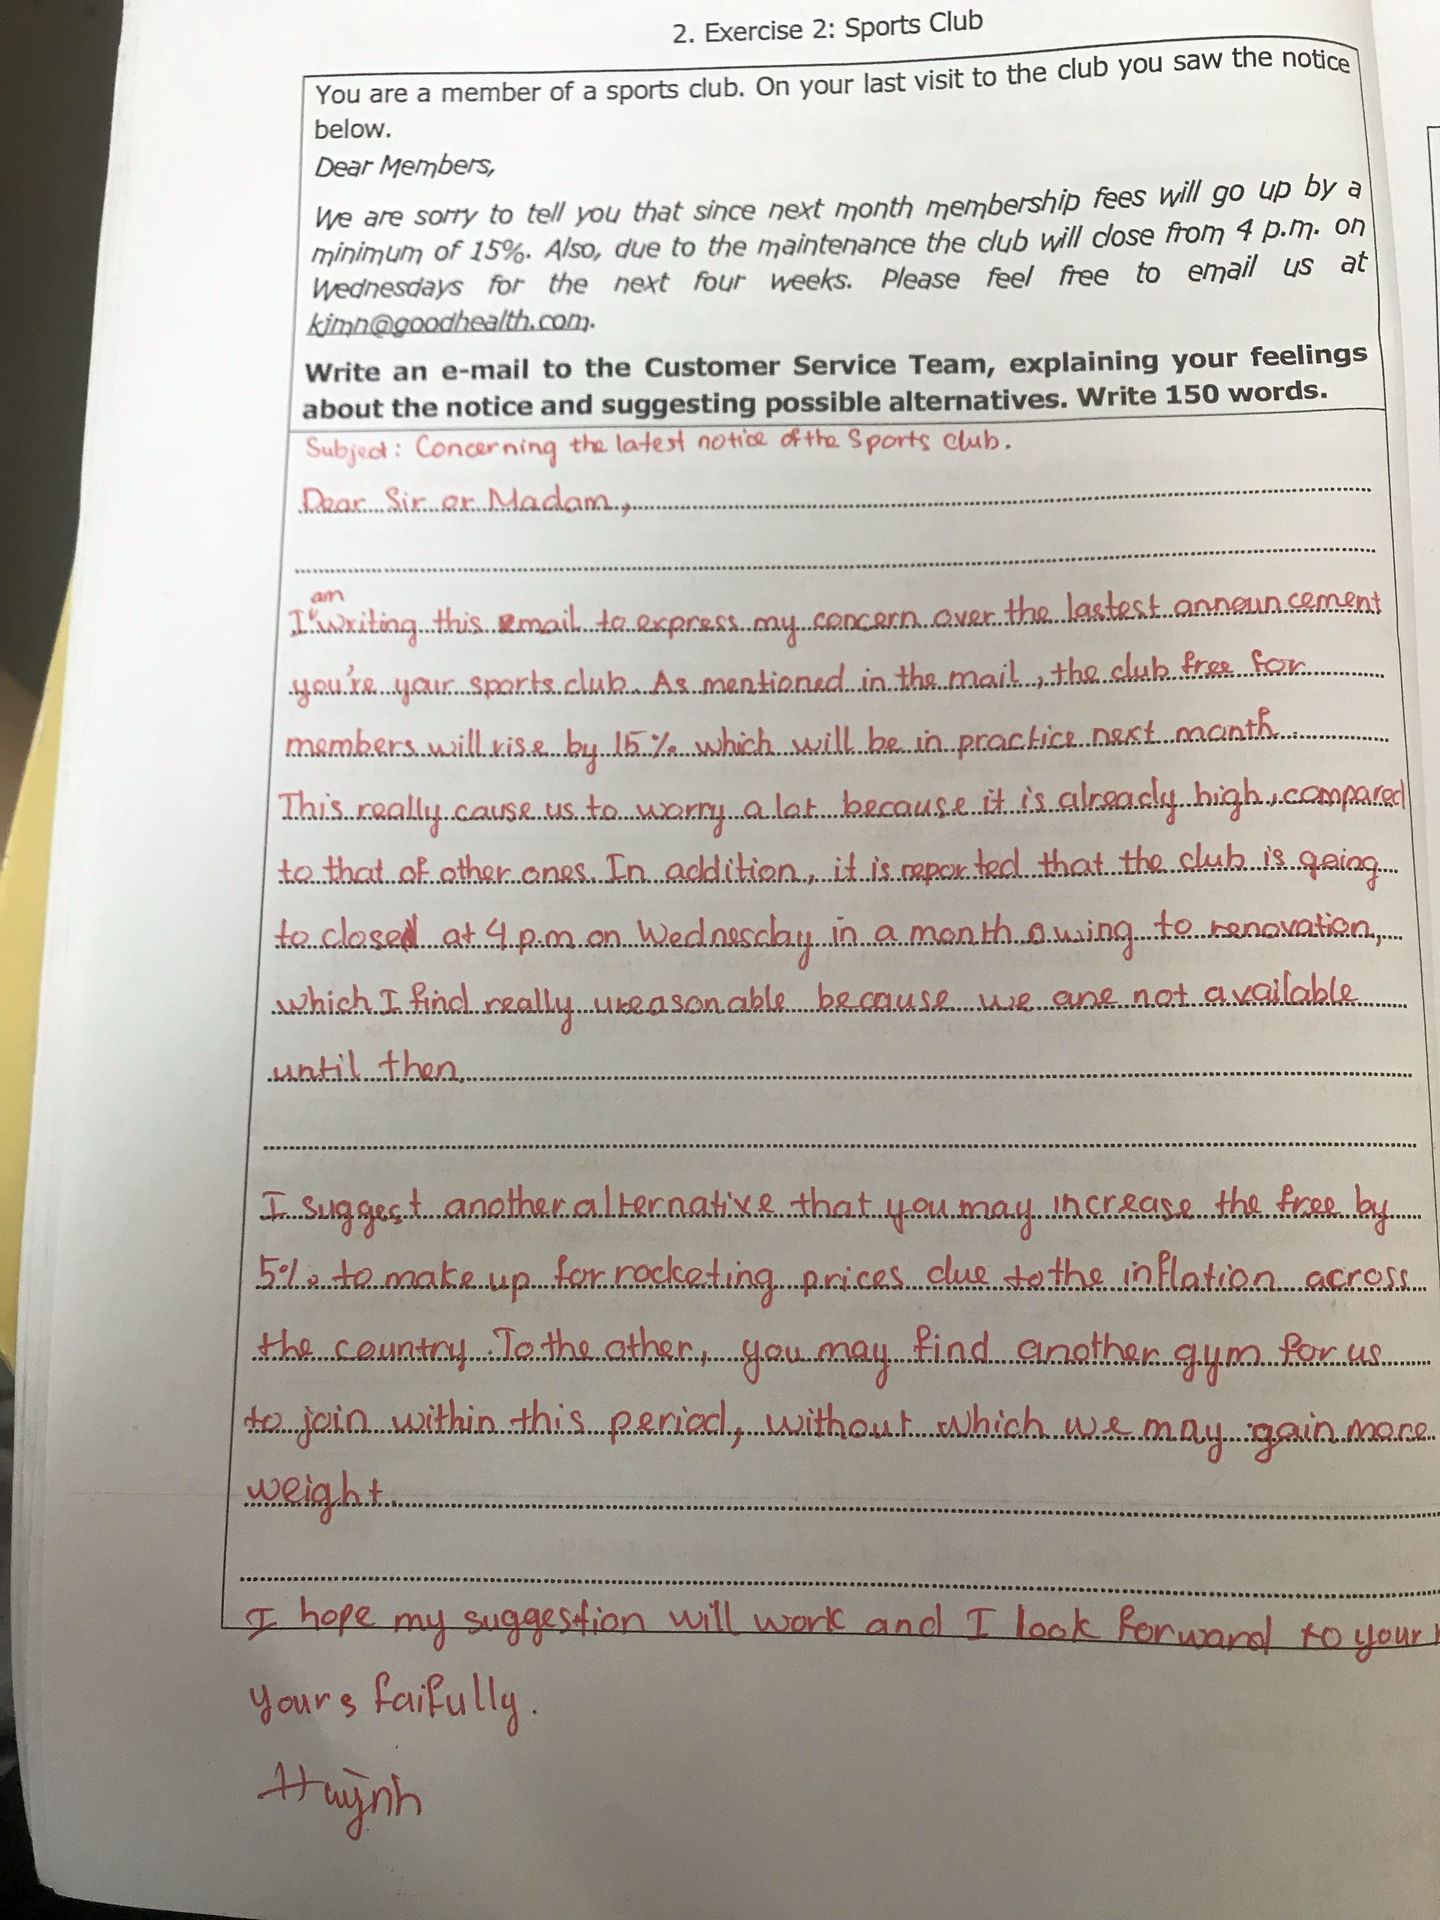 2. Exercise 2: Sports Club
You are a member of a sports club. On your last visit to the club you saw the notice
below.
Dear Members,
We are sorry to tell you that since next month membership fees will go up by a
minimum of 15%. Also, due to the maintenance the club will close from 4 p.m. on
Wednesdays for the next four weeks. Please feel free to email us at
kimn@goodhealth.com.
Write an e-mail to the Customer Service Team, explaining your feelings
about the notice and suggesting possible alternatives. Write 150 words.
Subject: Concerning the latest notice of the Sports club.
Dear Sir or Madam,
am
I writing this email to express my concern over the lastest announcement
you're your sports club. As mentioned in the mail, the club free for
members will rise by 15% which will be in practice next month.
This really cause us to worry a lot because it is already high, compared
to that of other ones. In addition, it is reported that the club is going
to closed at 4 p.m on Wednesday in a month owing to renovation,
which I find really ureasonable because we are not available
until then.
I suggest another alternative that you may increase the free by
5% to make up for rocketing prices due to the inflation across
the country. To the other, you may find another gym for us
to join within this period, without which we may gain more
weight.
I hope my suggestion will work and I look forward to your
yours faifully.
Huỳnh